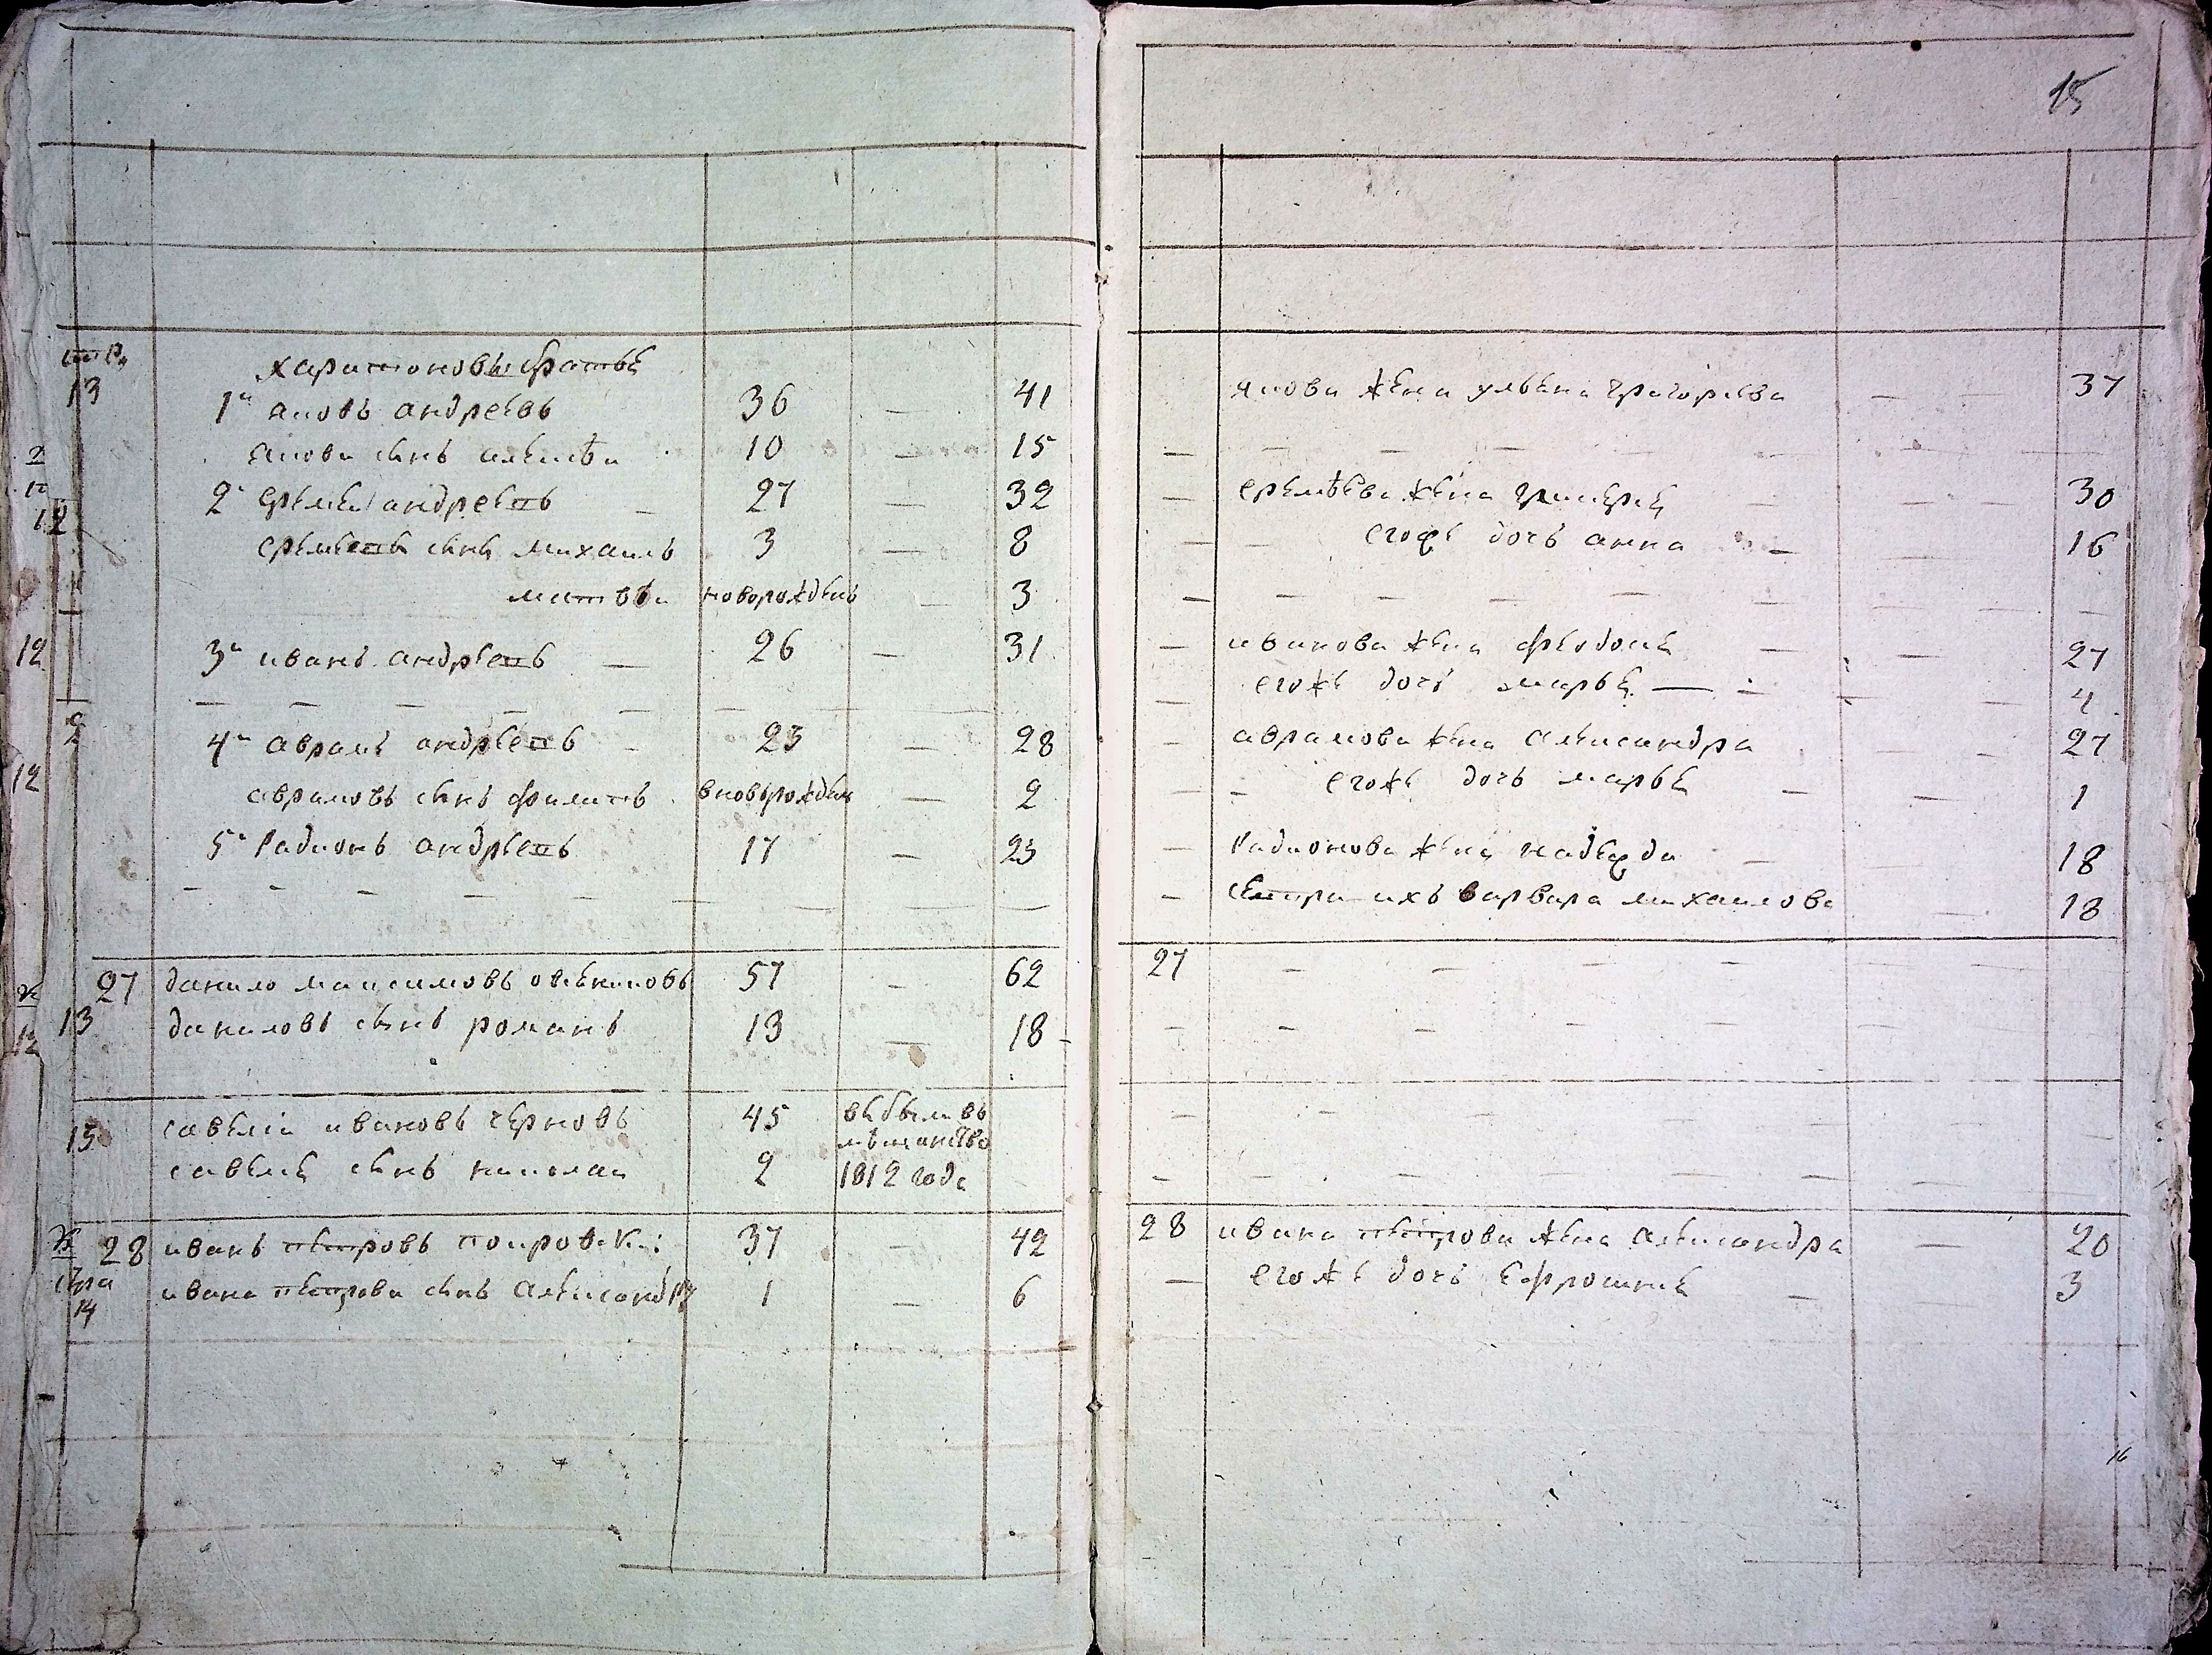 15
стра
13
харитоновы братья
1й яковъ андреевъ 36 — 41
якова сынъ алексѣй 10 — 15
2й еремей андреевъ — 27 — 32
еремеевъ сынъ михаилъ 3 — 8
матвѣй новорожденъ — 3
3й иванъ андреевъ — 26 — 31
4й аврамъ андреевъ — 23 — 28
аврамовъ сынъ филипъ вновьрожден — 2
5й Радионъ андреевъ 17 — 23
27 данило максимовъ 57 — 62
13 даниловъ сынъ романъ 13 — 18
15 савелій ивановъ черновъ 45 выбыли въ
мѣщанство
савелия сынъ николаи 2 1812 года
28 иванъ петровъ покровски: 37 — 42
стра
14
ивана петрова сынъ Александр 1 — 6
якова жена ульяна григорьева — — 37
— еремѣева жена — 30
егожъ дочь анна — 16
— иванова жена федосия — 27
егожъ дочь марья — 4
— аврамова жена Александра — 27
егожъ дочь марья — 1
— Радионова жена надежда — 18
— сестра ихъ варвара михаилова — 18
27
28 ивана петрова жена Александра — 20
— егожъ дочь Ефросиния — 3